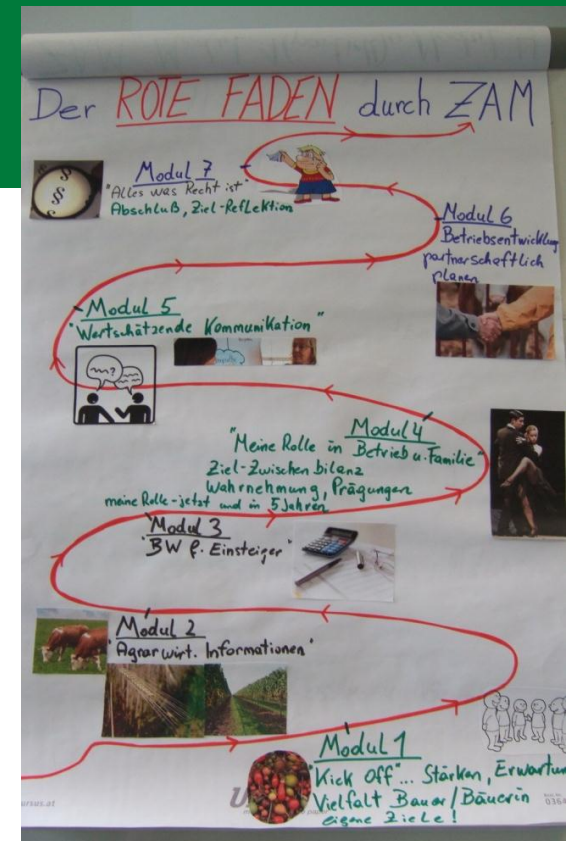 Der ROTE FADEN durch ZAM
Modul 7
"Alles was Recht ist"
Abschluß, Ziel-Reflektion
Modul 6
Betriebsentwicklung
partnerschaftlich
planen
Modul 5
"Wertschätzende Kommunikation"
Modul 4
"Meine Rolle in Betrieb u. Familie"
Ziel-Zwischenbilanz
Wahrnehmung, Prägungen
meine Rolle - jetzt und in 5 Jahren
Modul 3
"BW f. Einsteiger"
Modul 2
"Agrarwirt. Informationen"
Modul 1
"Kick Off"... Stärken, Erwartun
Vielfalt Bauer/Bäuerin
eigene Ziele!
ursus.at
0364